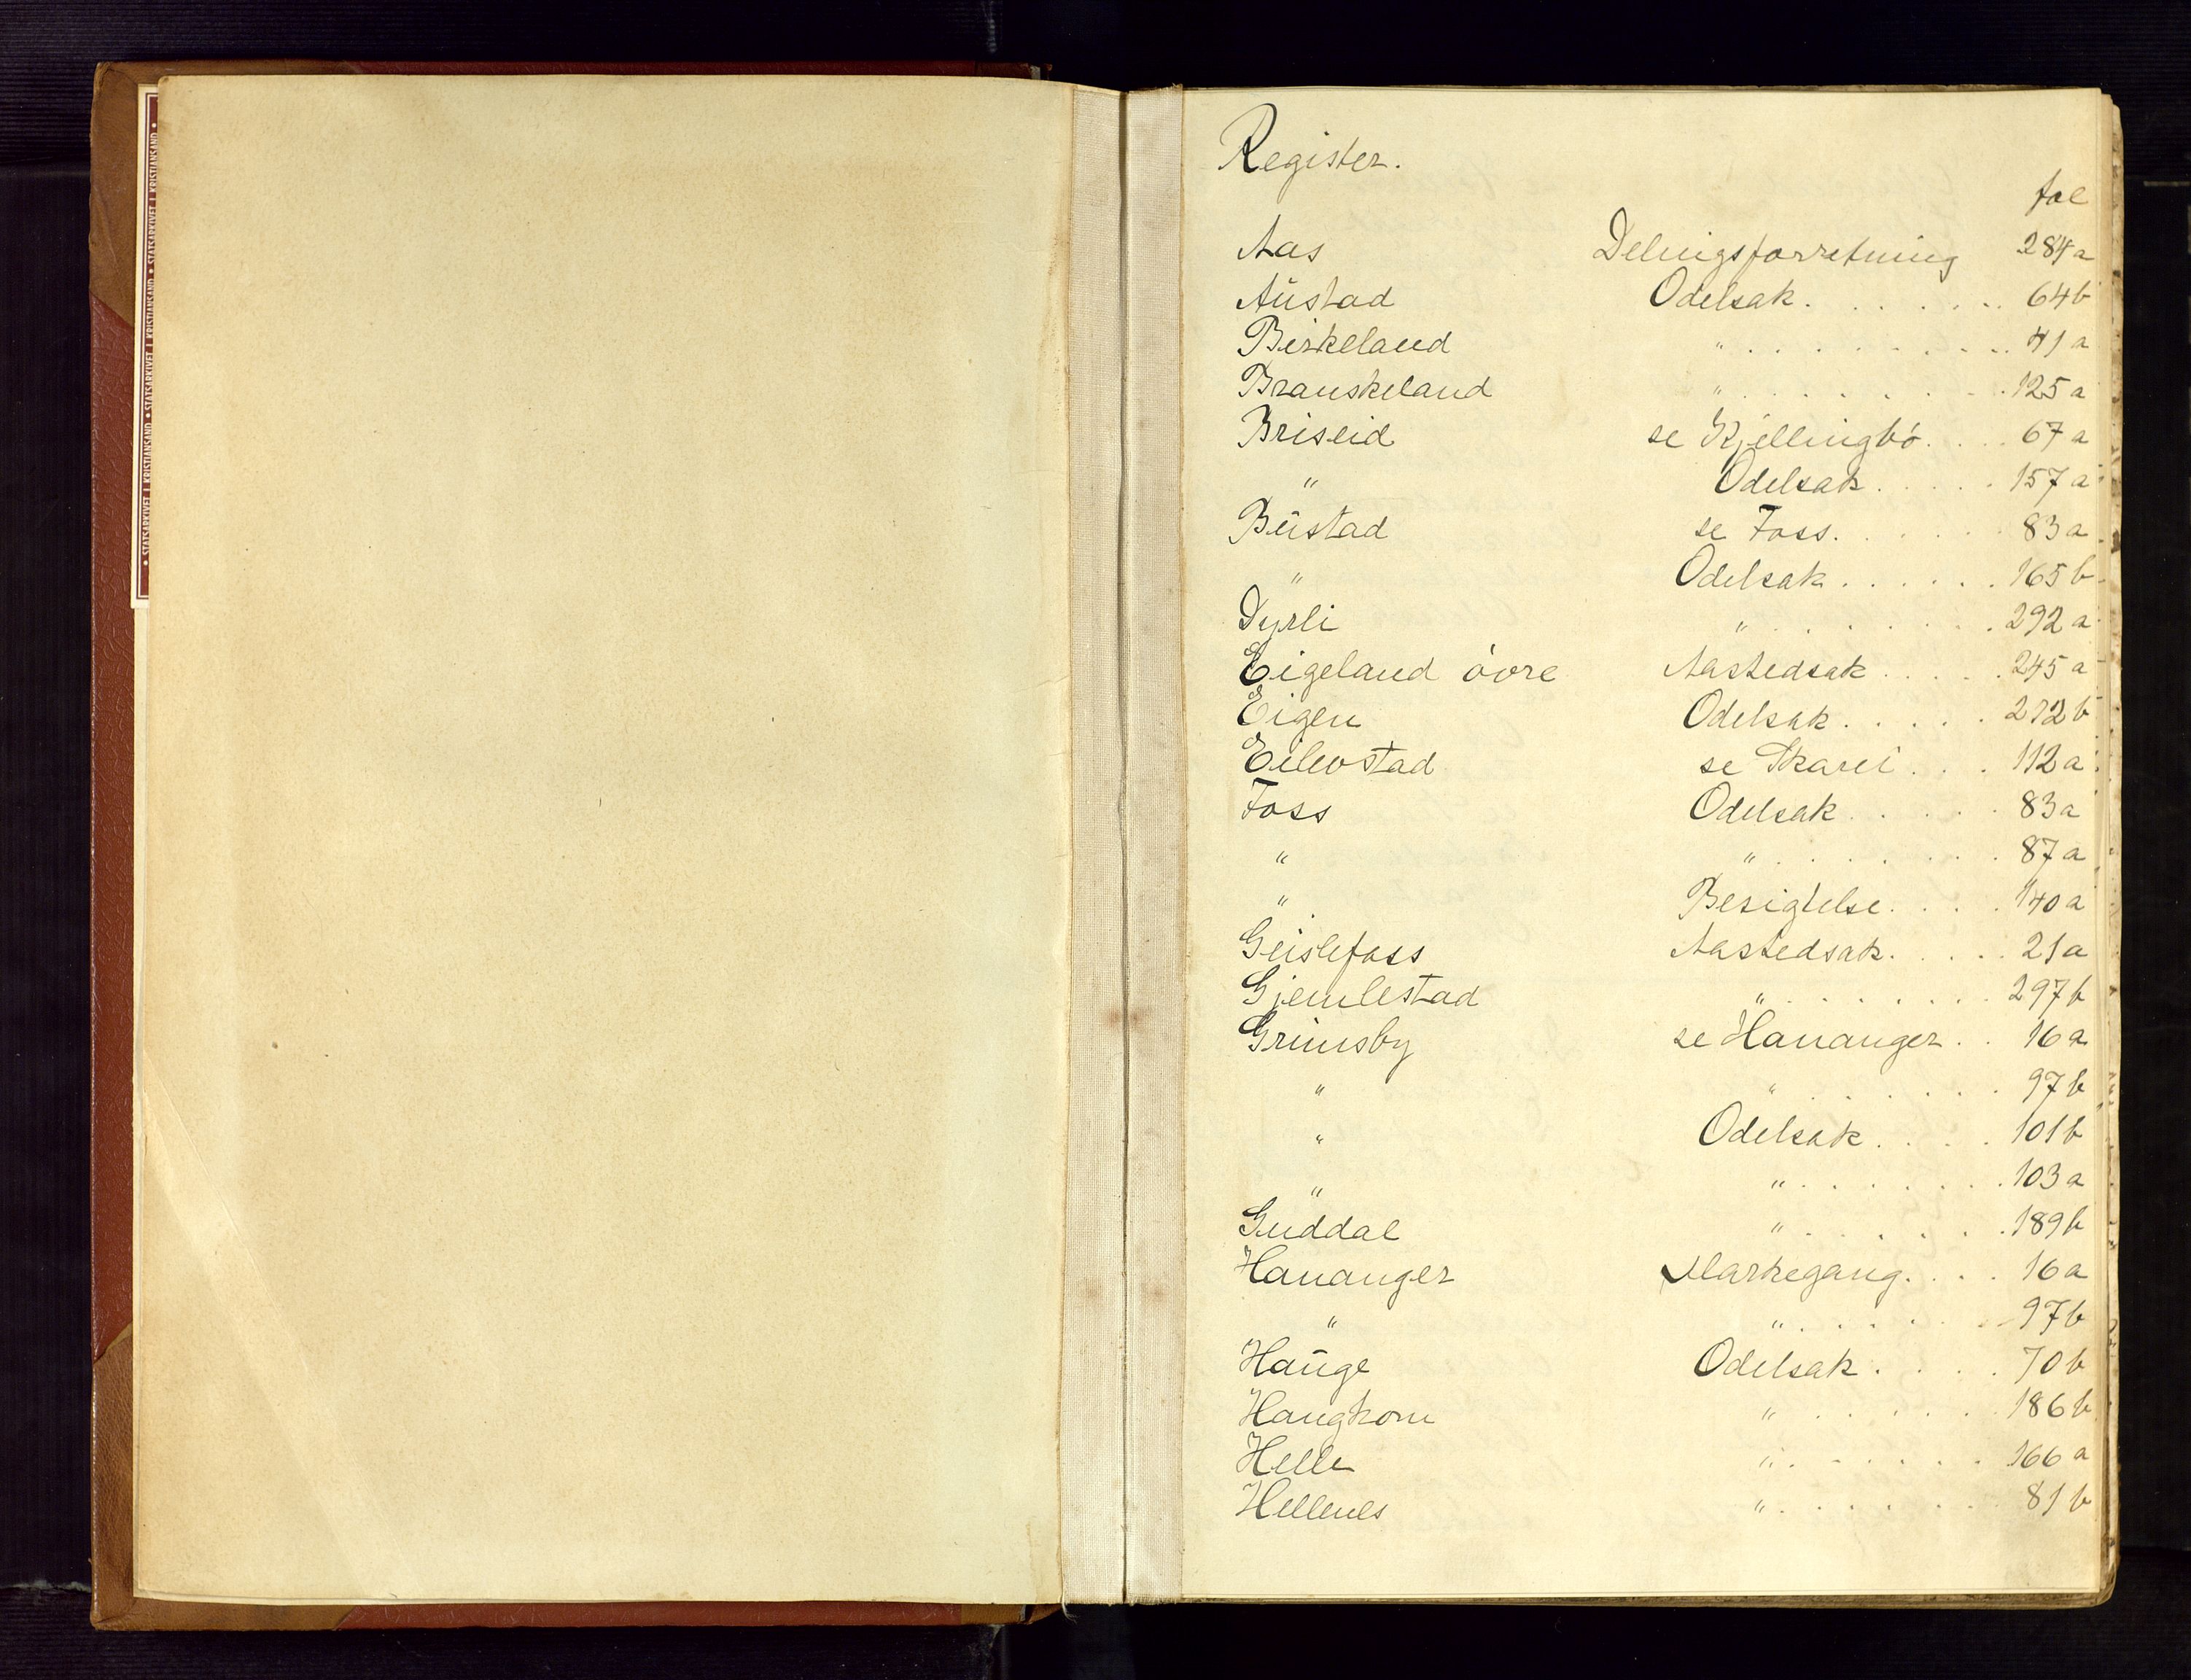 • STATSARKIVET I KRISTIANSAND • STATSARKIVET I KRISTIANSAND • STATSARKIVET I KRISTIANSAND •
Register.
fol
Aas Delingsforretning 284a
Aūstad Odelsak. . . . . . . 64b
Birkeland " . . . . . . . . . 41a
Branskeland " . . . . . . . . 125a
Briseid se Kjellingbö. . . . 67a
" Odelsak. . . . . 157a
Būstad se Foss. . . . . . 83a
" Odelsak . . . . . . 165b
Dyrli " . . . . . . . 292a
Eigeland övre Aastedsak . . . . . 245a
Eigen Odelsak . . . . . 212b
Eilevstad se Skarei . . . 112a
Foss Odelsak . . . . . 83a
" " . . . . . . . 87a
" Besigtelse. . . . 140a
Geislefoss Aastedsak. . . . . 21a
Gjemlestad " . . . . . . . . 297b
Grimsby se Hananger . . 16a
" " . . . . . . 97b
" Odelsak . . . . 101b
" " . . . . . . . 103a
Guddal " . . . . . . . 189b
Hananger Markegang. . . . 16a
" " . . . . . . 97b
Haūge Odelsak . . . . 70b
Haugkom " . . . . . . 186b
Helle " . . . . . . 166a
Hellenes " . . . . . . 81b